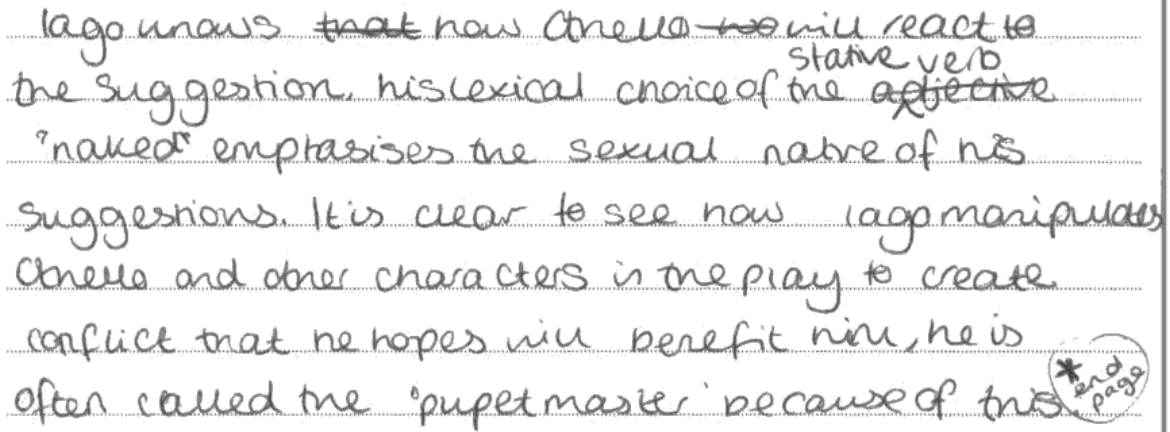 Iago knows that how Othello wo will react to
stative verb
the suggestion, his lexical choice of the adjective
"naked" emphasises the sexual nature of his
suggestions. It is clear to see how Iago manipulates
Othello and other characters in the play to create
conflict that he hopes will benefit him, he is
often called the 'pupetmaster' because of this.
* end page